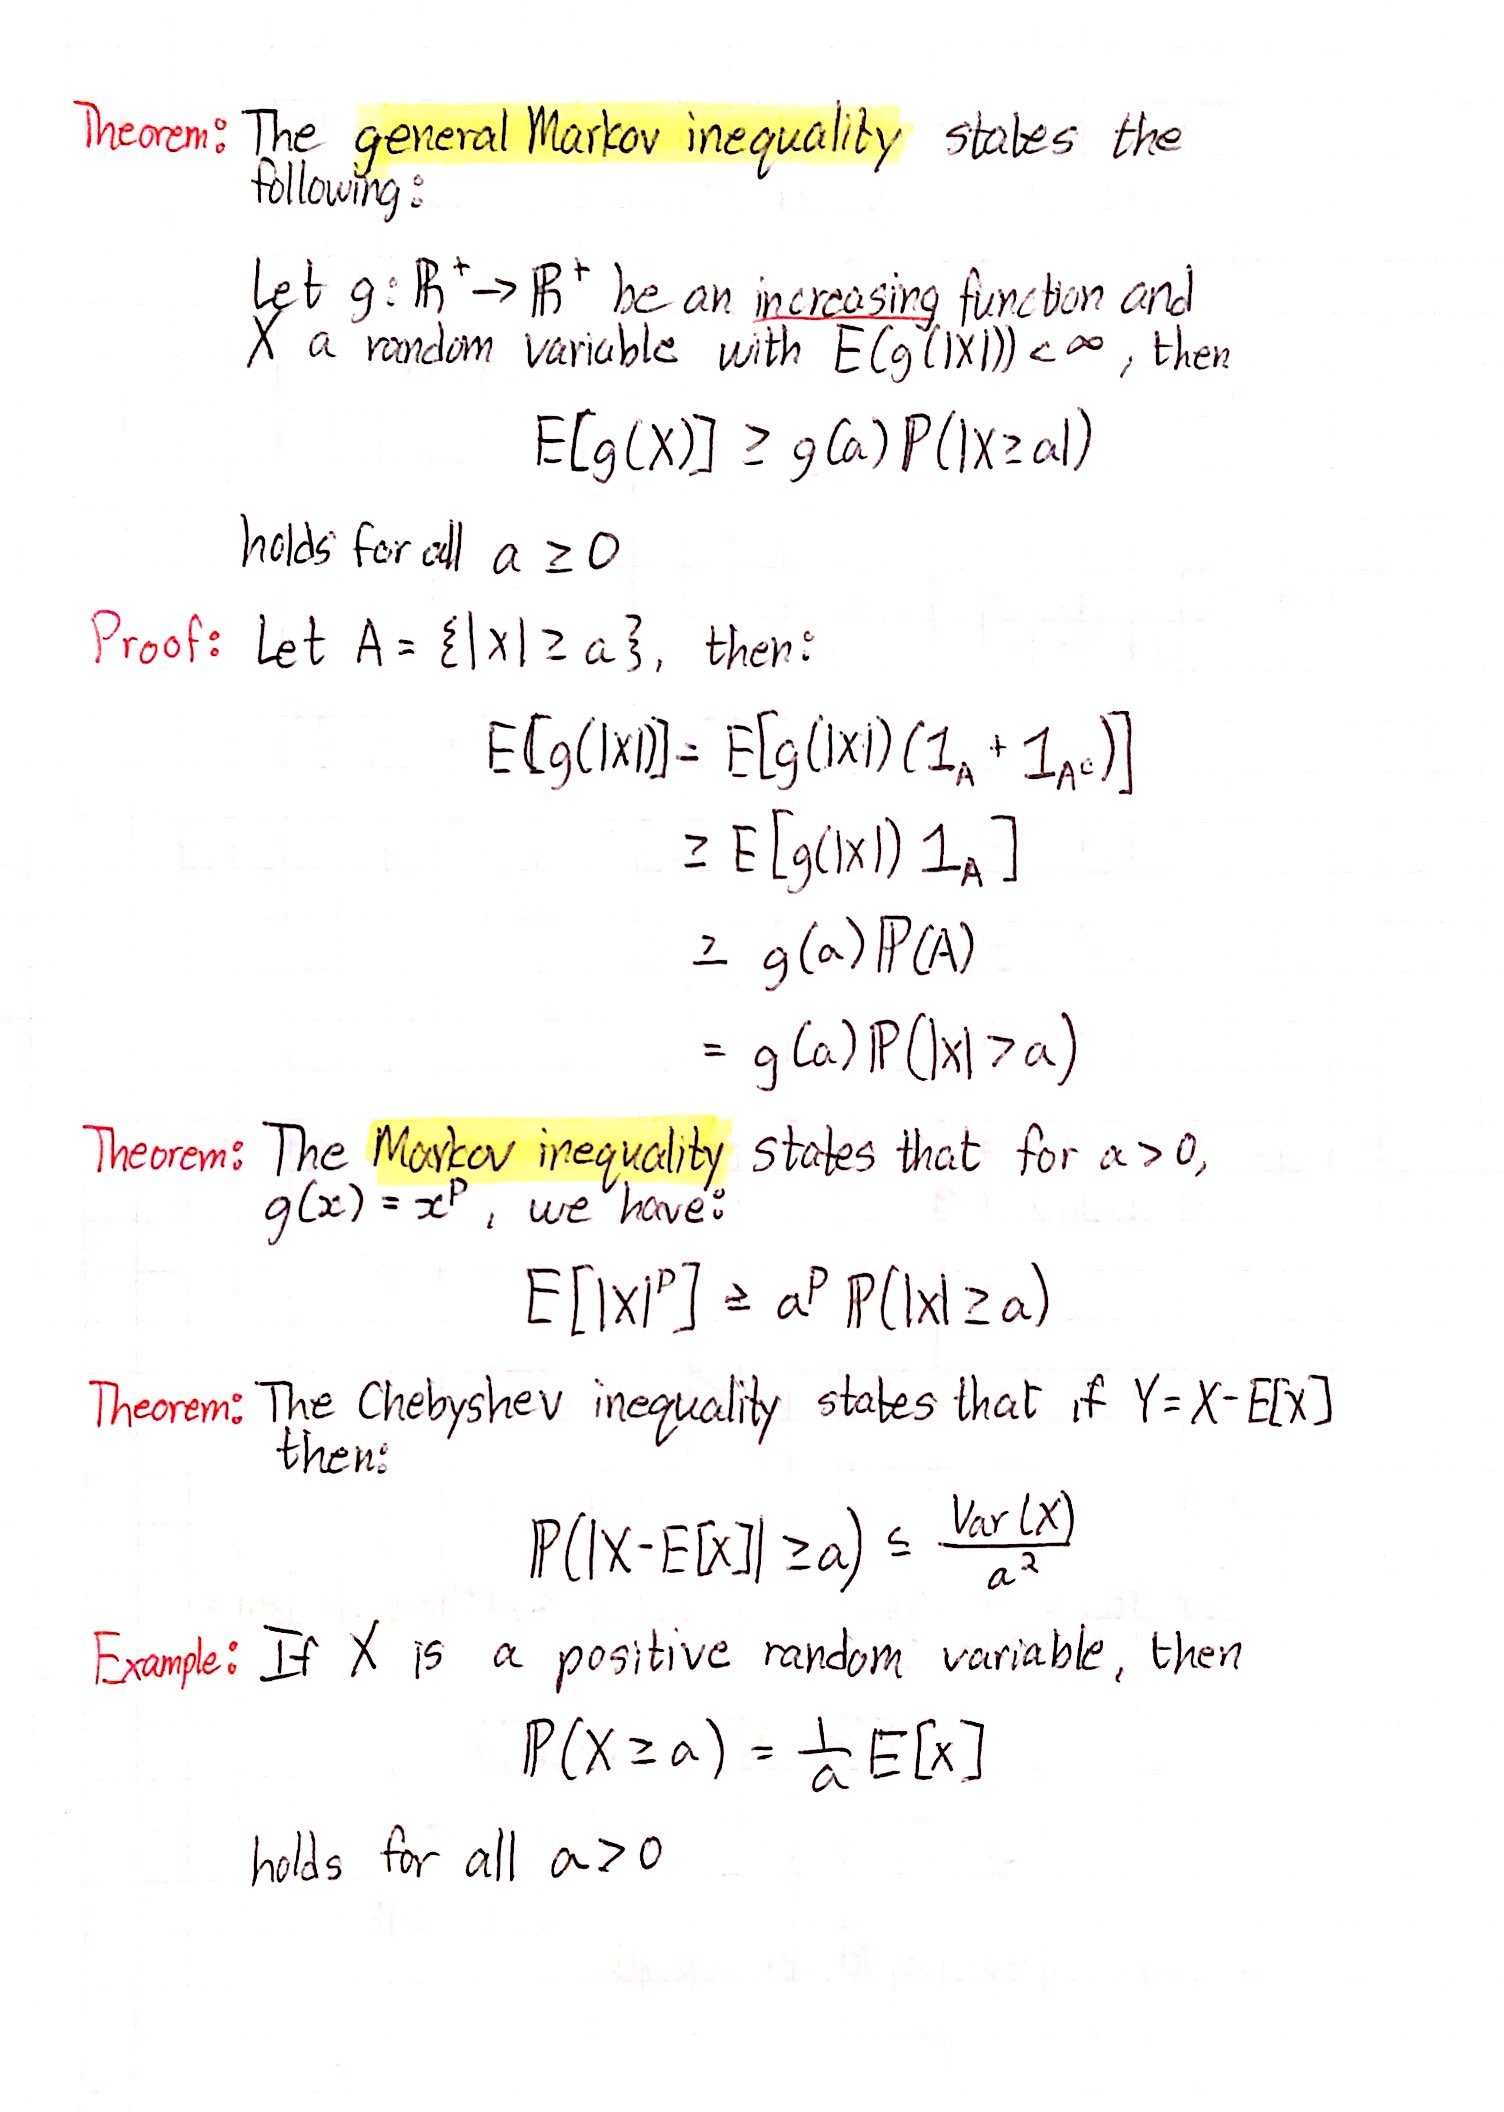 Theorem: The general Markov inequality states the
following:
Let g: ℝ⁺ → ℝ⁺ be an increasing function and
X a random variable with E(g(|X|)) < ∞, then
E[g(X)] ≥ g(a) ℙ(|X ≥ a|)
holds for all a ≥ 0
Proof: Let A = {|X| ≥ a}, then:
E[g(|X|)] = E[g(|X|) (1_A + 1_{A^c})]
≥ E[g(|X|) 1_A]
≥ g(a) ℙ(A)
= g(a) ℙ(|X| > a)
Theorem: The Markov inequality states that for a > 0,
g(x) = x^p, we have:
E[|X|^p] ≥ a^p ℙ(|X| ≥ a)
Theorem: The Chebyshev inequality states that if Y = X - E[X]
then:
ℙ(|X - E[X]| ≥ a) ≤ Var(X)/a²
Example: If X is a positive random variable, then
ℙ(X ≥ a) = 1/a E[X]
holds for all a > 0